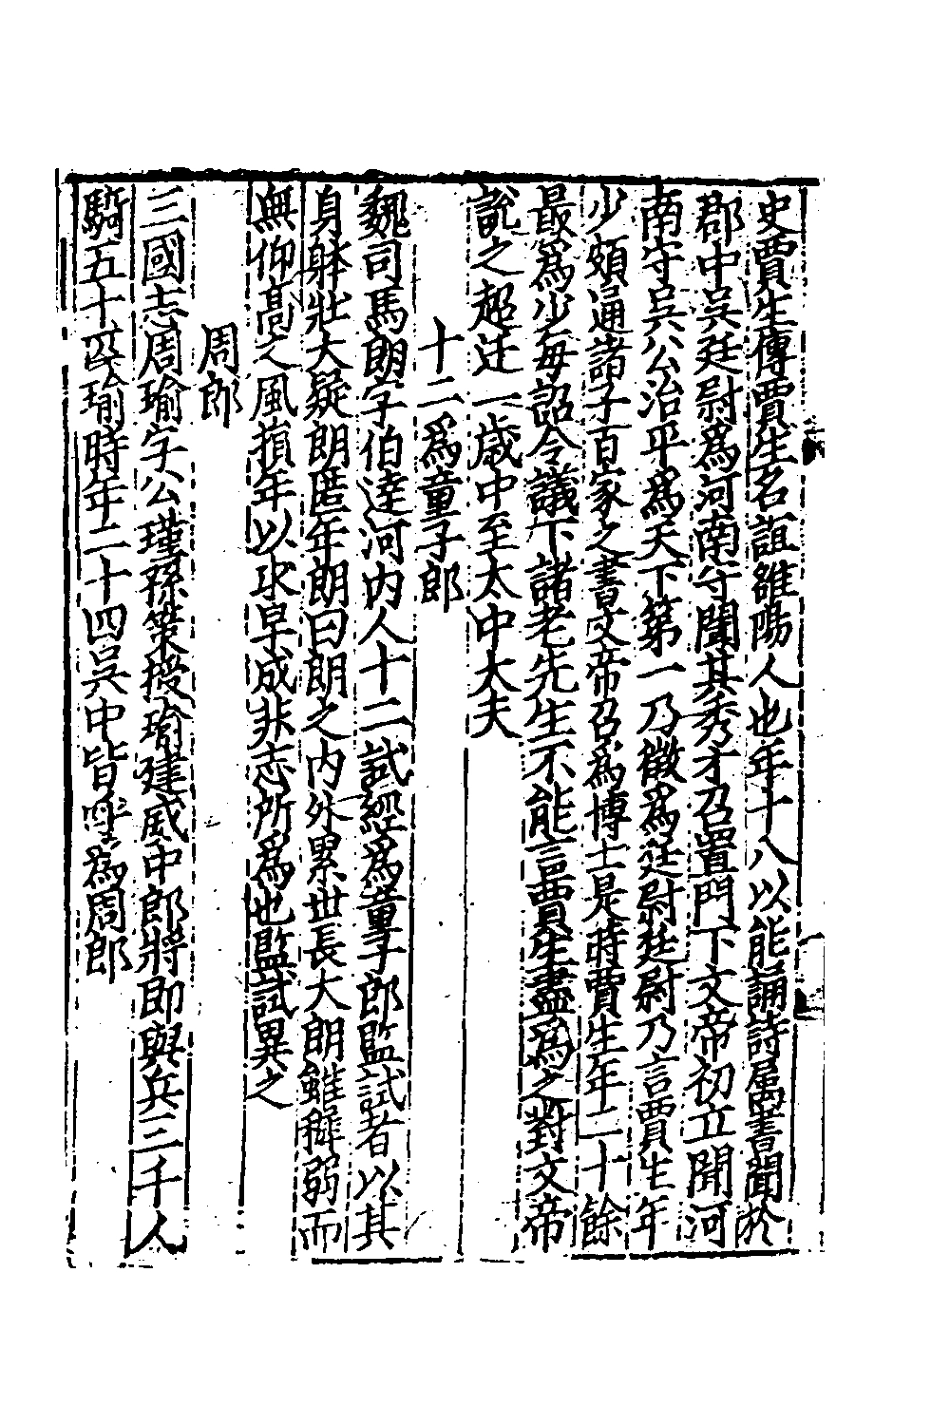 史賈生傳賈生名誼雒陽人也年十八以能誦詩属書聞於
郡中吳廷尉爲河南守聞其秀才召置門下文帝初立聞河
南守吳公治平爲天下第一乃徵爲廷尉廷尉乃言賈生年
少頗通諸子百家之書文帝召爲博士是時賈生年二十餘
最爲少每詔令議下諸老先生不能言賈生盡爲之對文帝
說之超迁一歲中至太中大夫
十二爲童子郎
魏司馬朗字伯逹河内人十二試經爲童子郎監試者以其
身躰壯大疑朗匿年朗曰朗之内外累世長大朗雖稺弱而
無仰髙之風損年以求早成非志所爲也監試異之
周郎
三國志周瑜字公瑾孫策授瑜建威中郎將即與兵二千人
騎五十匹瑜時年二十四吳中皆呼爲周郎